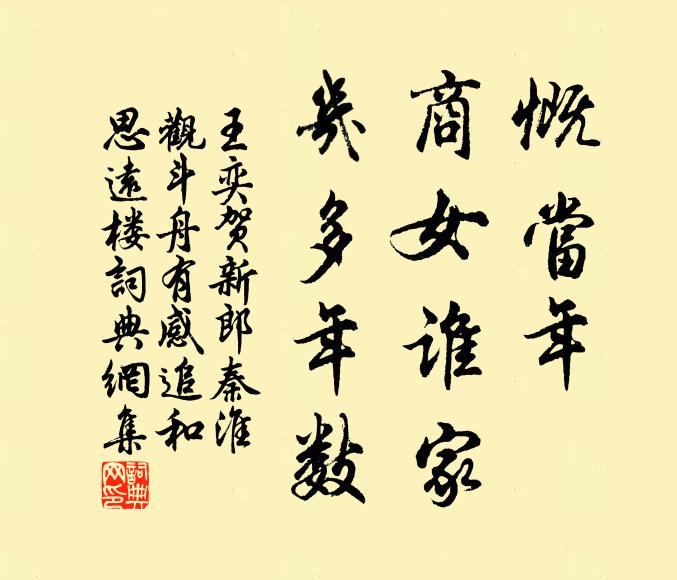 慨當年
商女誰家
幾多年数
王奕贺新郎秦淮
觀斗舟有感追和
思遠楼詞典網集
詞典网印